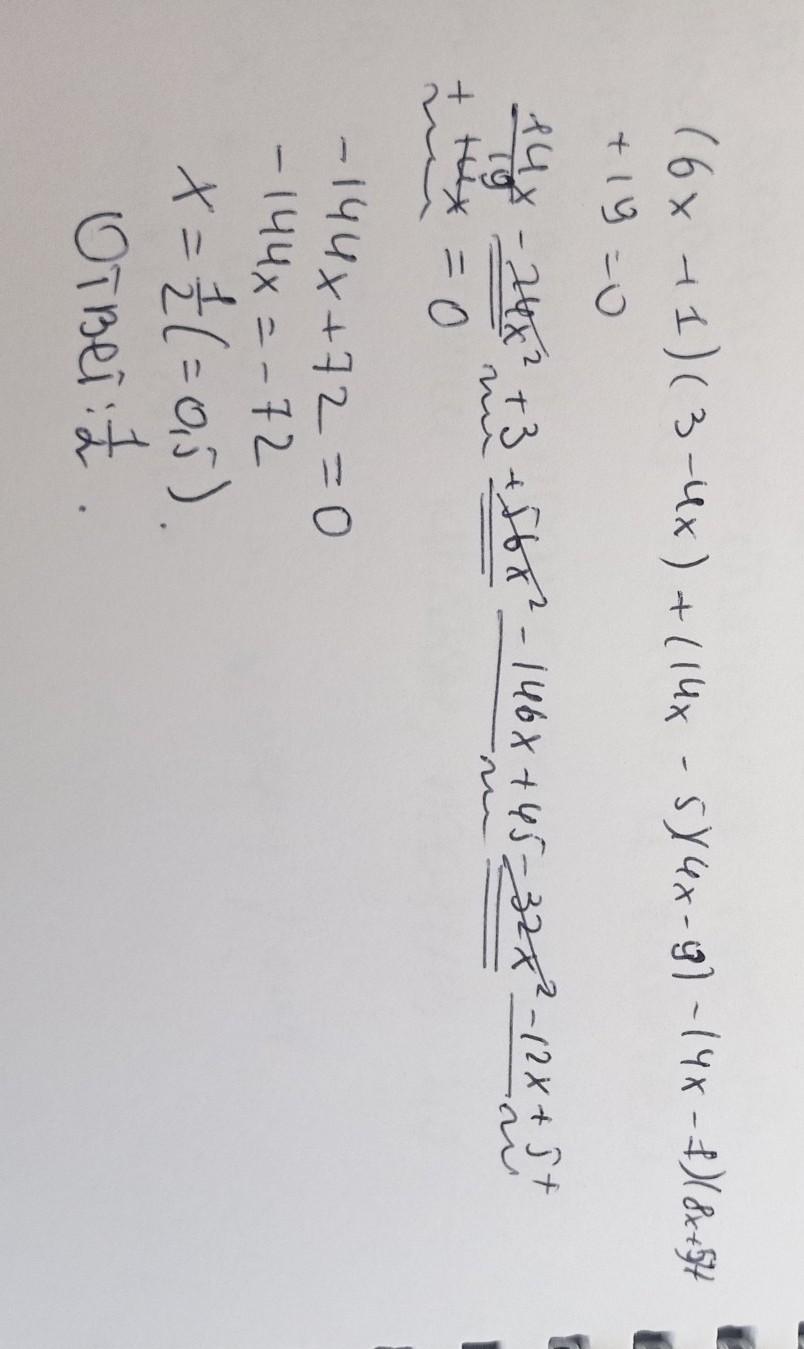 (6x + 1)(3 - 4x) + (14x - 5)(4x - 9) - (4x - 1)(8x + 5) +
+ 19 = 0
14x - 24x² + 3 + 56x² - 146x + 45 - 32x² - 12x + 5 +
+ 19 = 0
-144x + 72 = 0
-144x = -72
x = 1/2 (= 0,5).
Ответ: 1/2.